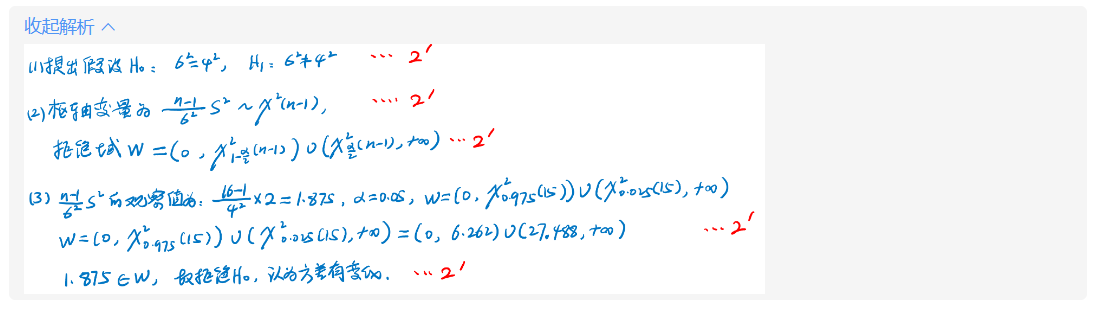 收起解析
(1)提出假设 H₀: σ²=4², H₁: σ²≠4² ... 2'
(2)枢轴变量为 n-1/σ² S² ~ χ²(n-1), .... 2'
拒绝域 W = (0, χ²₁₋α/₂(n-1)) ∪ (χ²α/₂(n-1), +∞) ... 2'
(3) n-1/σ² S² 的观察值为: 16-1/4² ×2 = 1.875, α=0.05, W=(0, χ²₀.₉₇₅(15)) ∪ (χ²₀.₀₂₅(15), +∞)
W=(0, χ²₀.₉₇₅(15)) ∪ (χ²₀.₀₂₅(15), +∞) = (0, 6.262) ∪ (27.488, +∞) ... 2'
1.875 ∈ W, 故拒绝H₀, 认为方差有变化. ... 2'